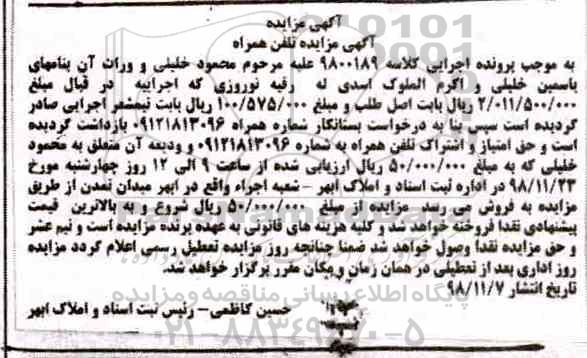 آگهی مزایده
آگهی مزایده تلفن همراه
به موجب پرونده اجرایی کلاسه ۹۸۰۰۱۸۹ علیه مرحوم محمود خلیلی و وراث آن بنامهای
یاسمین خلیلی و اکرم الملوک اسدی له رقیه نوروزی که اجراییه در قبال مبلغ
۲/۰۱۱/۵۰۰/۰۰۰ ریال بابت اصل طلب و مبلغ ۱۰۰/۵۷۵/۰۰۰ ریال بابت نیمعشر اجرایی صادر
گردیده است سپس بنا به درخواست بستانکار شماره همراه ۰۹۱۲۱۸۱۳۰۹۶ بازداشت گردیده
است و حق امتیاز و اشتراک تلفن همراه به شماره ۰۹۱۲۱۸۱۳۰۹۶ و ودیعه آن متعلق به محمود
خلیلی که به مبلغ ۵۰/۰۰۰/۰۰۰ ریال ارزیابی شده از ساعت ۹ الی ۱۲ روز چهارشنبه مورخ
۹۸/۱۱/۲۳ در اداره ثبت اسناد و املاک ابهر - شعبه اجراء واقع در ابهر میدان تمدن از طریق
مزایده به فروش می رسد. مزایده از مبلغ ۵۰/۰۰۰/۰۰۰ ریال شروع و به بالاترین قیمت
پیشنهادی نقدا فروخته خواهد شد و کلیه هزینه های قانونی به عهده برنده مزایده است و نیم عشر
و حق مزایده نقدا وصول خواهد شد ضمنا چنانچه روز مزایده تعطیل رسمی اعلام گردد مزایده
روز اداری بعد از تعطیلی در همان زمان و مکان مقرر برگزار خواهد شد.
تاریخ انتشار ۹۸/۱۱/۷
حسین کاظمی- رئیس ثبت اسناد و املاک ابهر
پایگاه اطلاع رسانی مناقصه و مزایده
۰۲۱-۸۸۳۴۹۶۷۰-۵